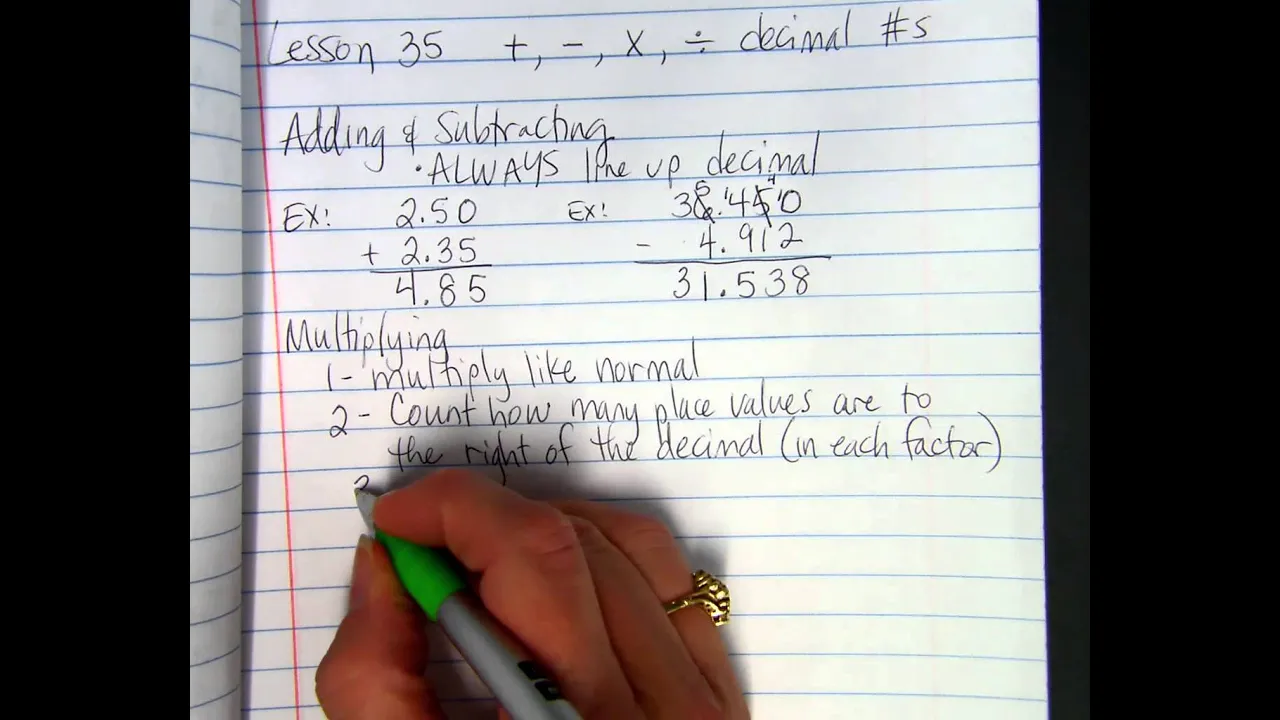 Lesson 35 +, -, x, ÷ decimal #s
Adding & Subtracting
· ALWAYS line up decimal
EX! 2.50 EX! 36.450
+ 2.35 - 4.912
4.85 31.538
Multiplying
1- multiply like normal
2- Count how many place values are to
the right of the decimal (in each factor)